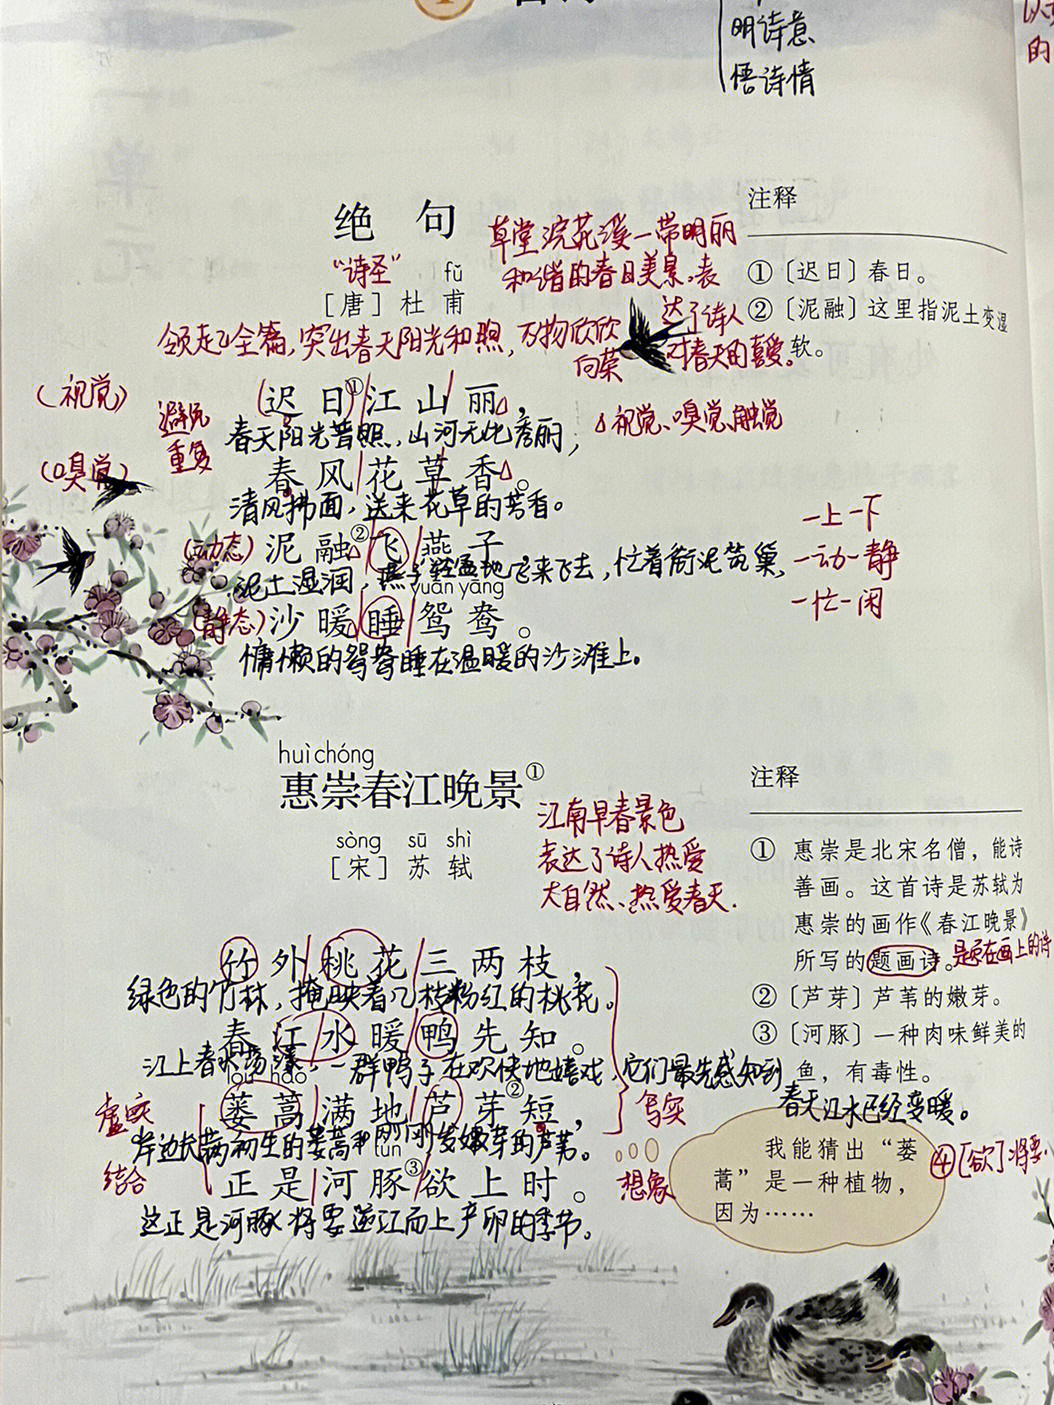 明诗意
悟诗情
绝句
草堂浣花溪一带明丽
和谐的春日美景.表
达了诗人
对春天的喜爱。
“诗圣”
fǔ
［唐］杜甫
注释
①〔迟日〕春日。
②〔泥融〕这里指泥土变湿
软。
领起全篇,突出春天阳光和煦,万物欣欣
向荣
(视觉)
避免
重复
迟日①江山丽，
视觉、嗅觉、触觉
春天阳光普照,山河无比秀丽;
(嗅觉)
春风花草香。
清风拂面,送来花草的芳香。
(动态)
泥融②飞燕子，
泥土湿润,燕子轻盈地飞来飞去,忙着衔泥筑巢,
一上一下
一动一静
一忙一闲
yuān yāng
(静态)
沙暖睡鸳鸯。
慵懒的鸳鸯睡在温暖的沙滩上。
huì chóng
惠崇春江晚景①
sòng sū shì
［宋］苏轼
江南早春景色
表达了诗人热爱
大自然、热爱春天.
注释
① 惠崇是北宋名僧，能诗
善画。这首诗是苏轼为
惠崇的画作《春江晚景》
所写的题画诗。
是题在画上的诗
②〔芦芽〕芦苇的嫩芽。
③〔河豚〕一种肉味鲜美的
鱼，有毒性。
④[欲]将要.
竹外桃花三两枝，
绿色的竹林,掩映着几枝粉红的桃花。
春江水暖鸭先知。
江上春水荡漾,一群鸭子在欢快地嬉戏,它们最先感知到
春天江水已经变暖。
lóu hāo
虚实
结合
蒌蒿满地芦芽②短，
写实
岸边长满初生的蒌蒿和刚刚发嫩芽的芦苇。
tún
正是河豚③欲上时。
想象
这正是河豚将要逆江而上产卵的季节。
我能猜出“蒌
蒿”是一种植物，
因为……